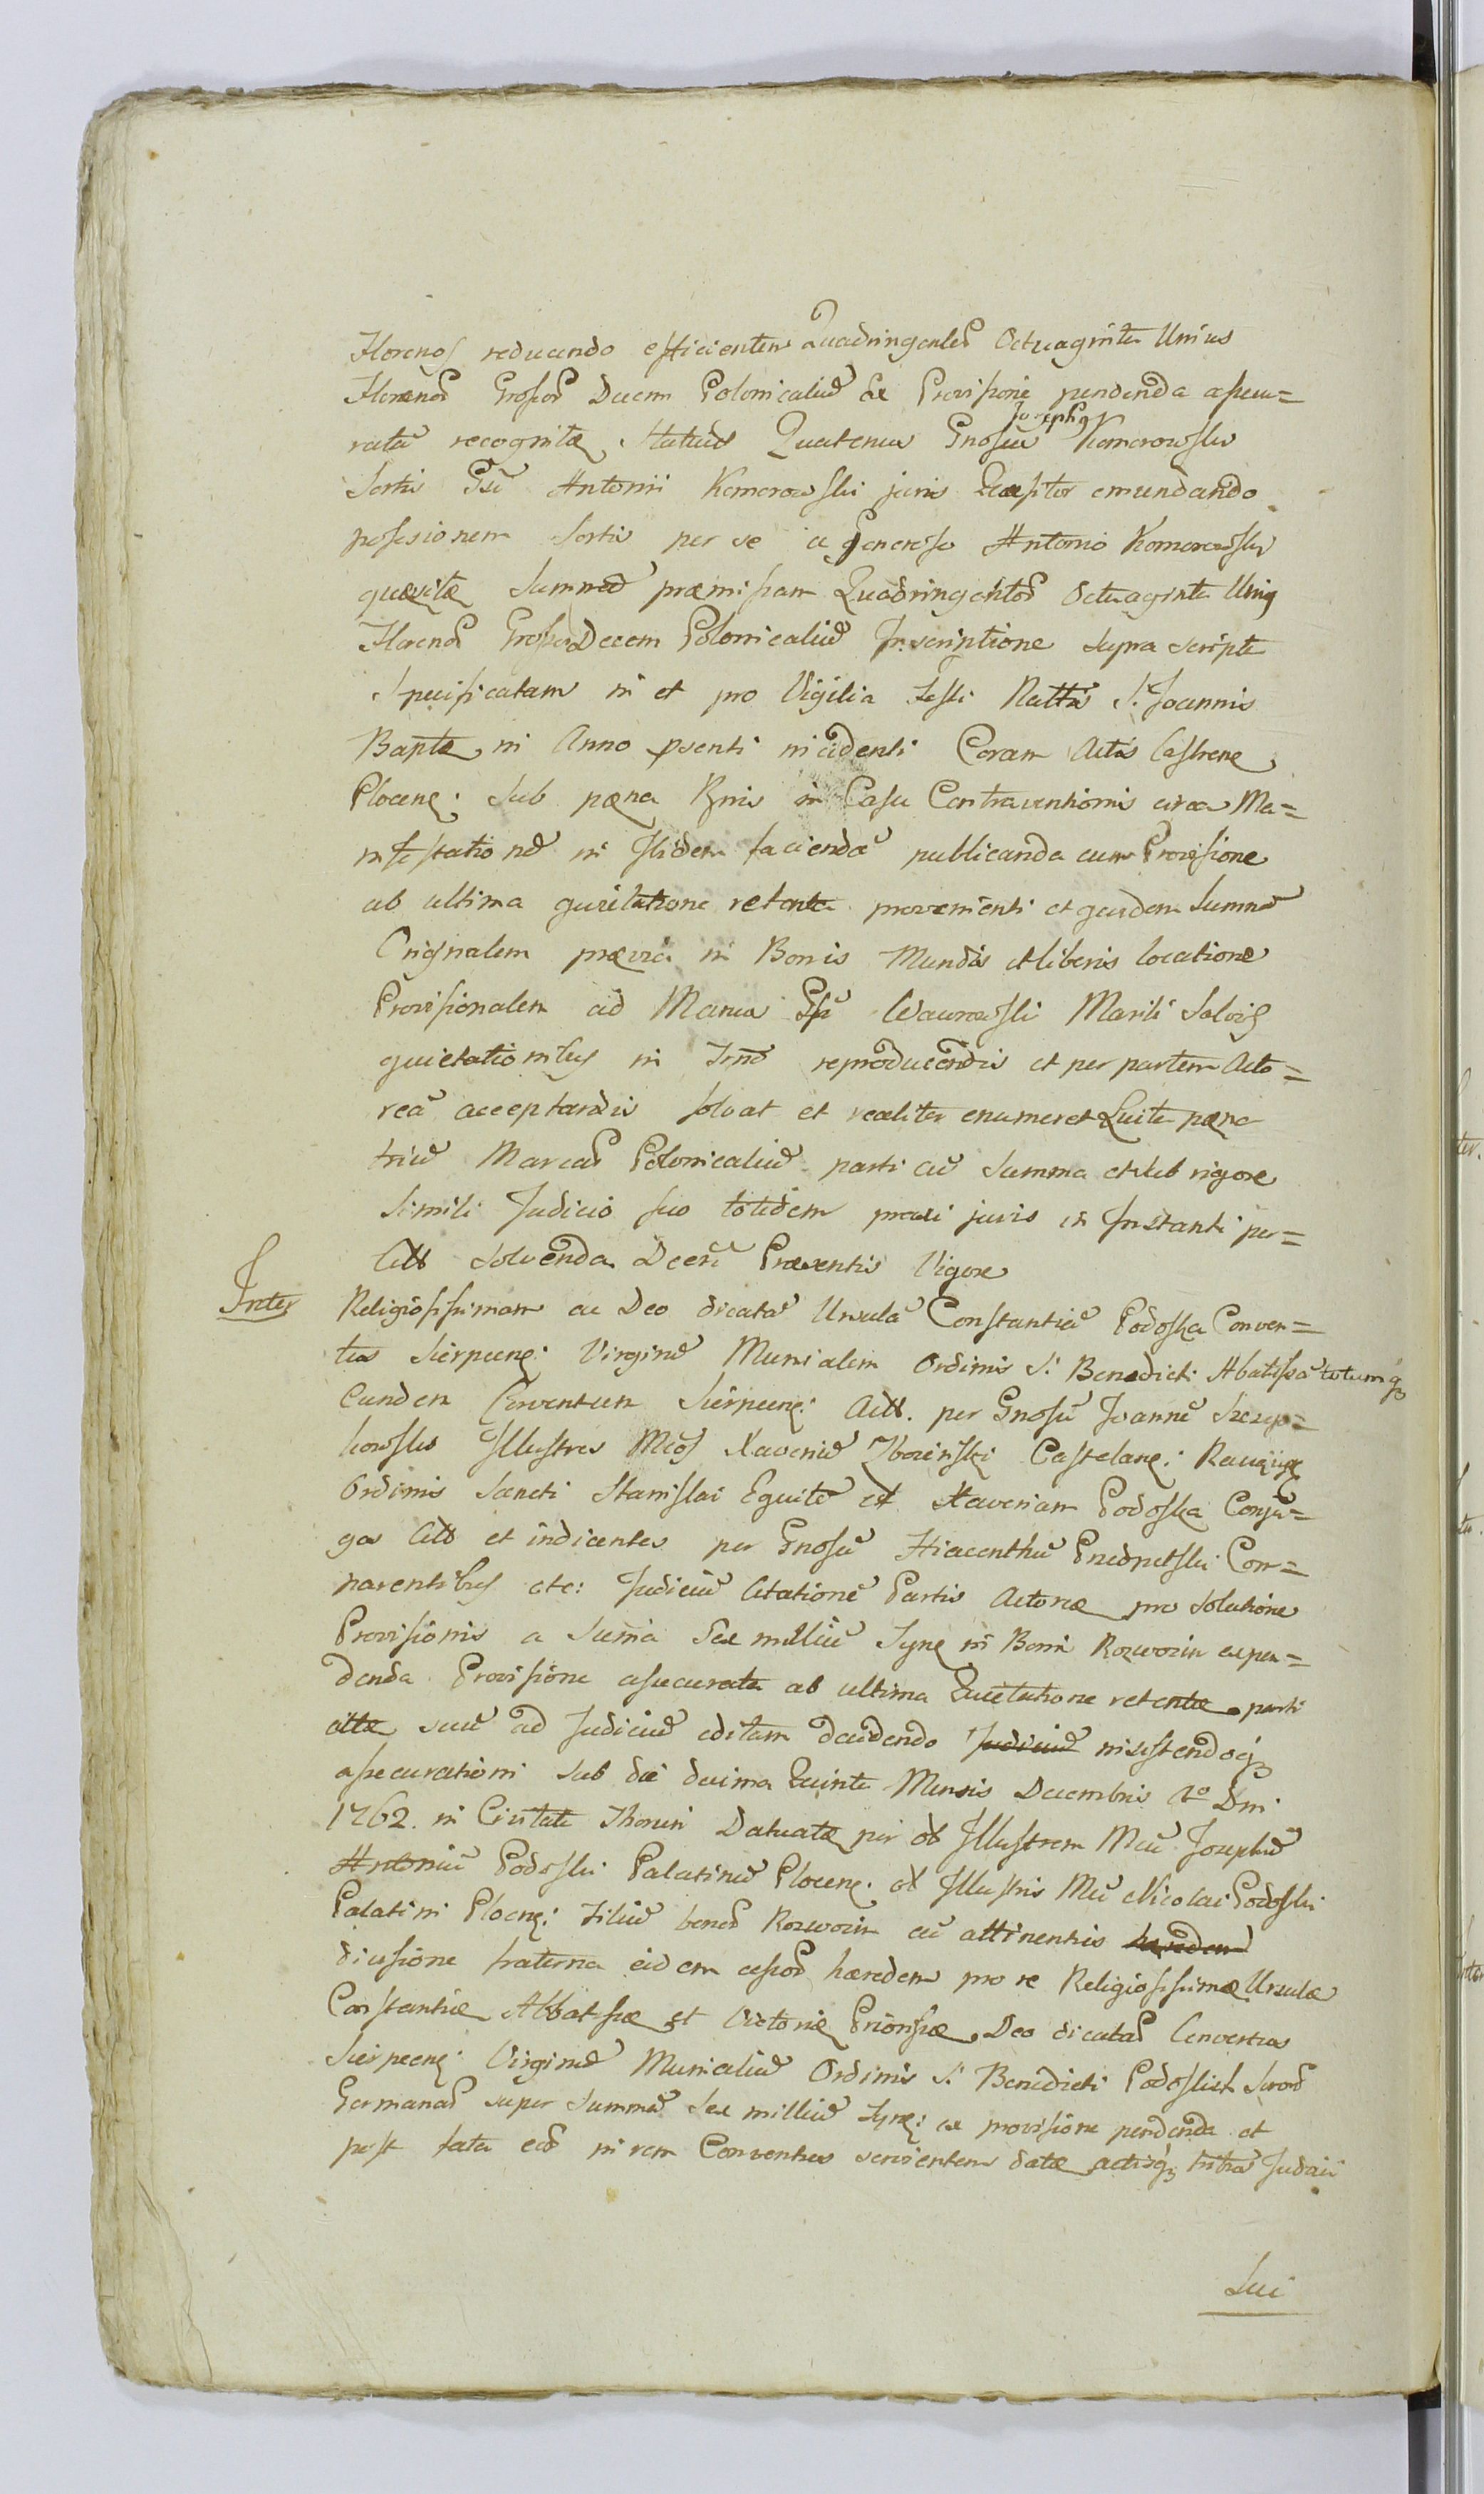 Florenos reducendo efficientem Quadringentos Octuaginta Unius
Florenos Grossos Decem Polonicaliũ de Provisione pendenda assecu=
ratã recognitæ Statuit Quatenus Gnosus Josephus Komorowski
Sortis Gsi Antonii Komorowski juris emundando
possesionem Sortis per se a Generoso Antonio Komorowski
quæsitæ Summã præmissam Quadringentos Octuaginta Unius
Florenos Grossos Decem Polonicaliũ Inscriptione supra scripta
Specificatam in et pro Vigilia Festi Nattis S. Joannis
Baptæ in Anno psenti incidenti Coram Actis Castrene
Plocens: sub pæna Bnis in Casu Contraventionis circa Ma=
nifestationẽ in Ibidem faciendã publicanda cum Provisione
ab ultima quietatione retenta provenienti et quidem Summã
Originalem prævia in Bonis Mundis et liberis locatione
Provisionalem ad Manus Gsi Wawrowski Mariti Salvis
quietationibus in Trno reproducendis et per partem Acto=
reã acceptandis solvat et realiter enumeret Luita pæna
triũ Marcas Polonicaliũ parti cũ Summa et sub rigore
simili Judicio suo totidem præsi juris in Instanti per=
Citt solvenda Decri Præsentis Vigore
Inter Religiosissimam ac Deo dicatã Ursulã Constantiã Podoska Conven=
tus Sierpcens: Virginũ Munialem Ordinis S. Benedicti Abatissã totumq
Eundem Conventum Sierpcens: Actt. per Gnosũ Joannẽ Szczyp=
kowski Illustres Mcos Xaveriũ Zboinski Castelans: Raciąż
Ordinis Sancti Stanislai Equitẽ et Xaveriam Podoska Conju=
gas Citt et indicentes per Gnosũ Hiacenthũ Przedpelski Com=
parentibus etc: Judiciũ Citationẽ Partis Actoreæ pro Solutione
Provisionis a Suma Sex milliũ Tyns in Bonis Rozwozin expen=
denda Provisione assecurata ab ultima Quietatione retentæ parti
cittæ suũ ad Judiciũ editam decidendo Judiciũ insistendoq
assecurationi sub die decima Quinta Mensis Decembris Ao Dni
1762. in Civitate Thoruni Datuatæ per ol Illustrem Mcũ Josephũ
Antoniũ Podoski Palatinũ Plocens: ol Illustris Mci Nicolai Podoski
Palatini Plocns: Filiũ bonos Rozwozin cũ attinentiis hæredem
divisione fraterna eidem cessos hæredem pro re Religiosissimæ Ursulæ
Constantiæ Abbatissæ et Victoriæ Priorissæ Deo dicatas Conventus
Sierpcens: Virginũ Munialiũ Ordinis S. Benedicti Podoskich Soros
Germanas super Summã Sex milliũ Tyns: ex provisione pendenda et
post fata eas in rem Conventus servientem datæ actisq Judicii
Sui